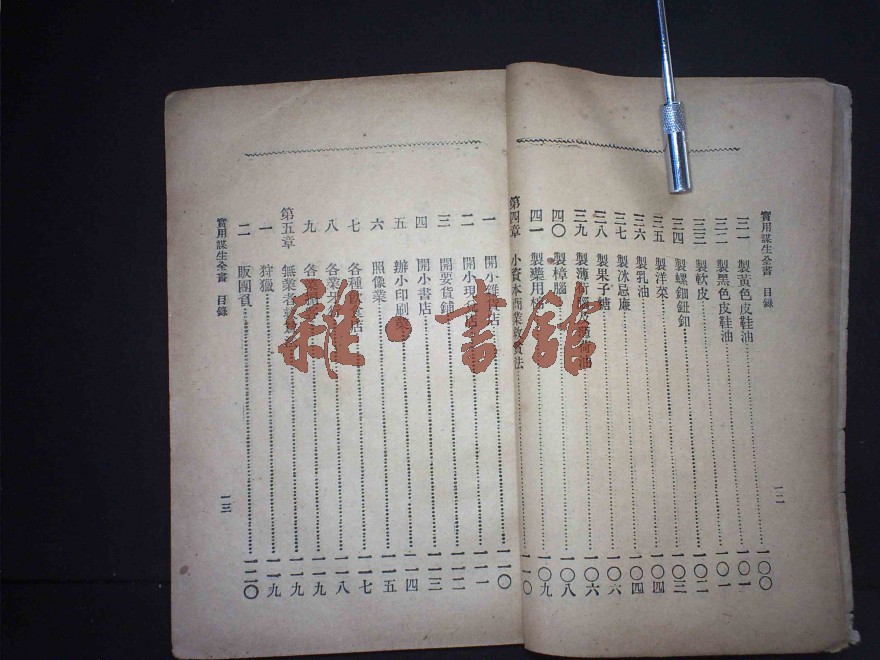 實用謀生全書 目錄
一二
三一 製黃色皮鞋油 一〇〇
三二 製黑色皮鞋油 一〇一
三三 製軟皮 一〇二
三四 製螺鈿鈕釦 一〇三
三五 製洋菜 一〇四
三六 製乳油 一〇四
三七 製冰忌廉 一〇六
三八 製果子糖 一〇六
三九 製薄荷腦及薄荷油 一〇八
四〇 製樟腦 一〇八
四一 製藥用 一〇九
第四章 小資本商業致富法 一一〇
一 開小雜貨店 一一〇
二 開小 店 一一一
三 開耍貨鋪 一一二
四 開小書店 一一三
五 辦小印刷業 一一四
六 照像業 一一五
七 各種飲食店 一一七
八 各業 一一八
九 各業 一一九
第五章 無業者 一一九
一 狩獵 一一九
二 販團員 一二〇
實用謀生全書 目錄
一三
雜·書館